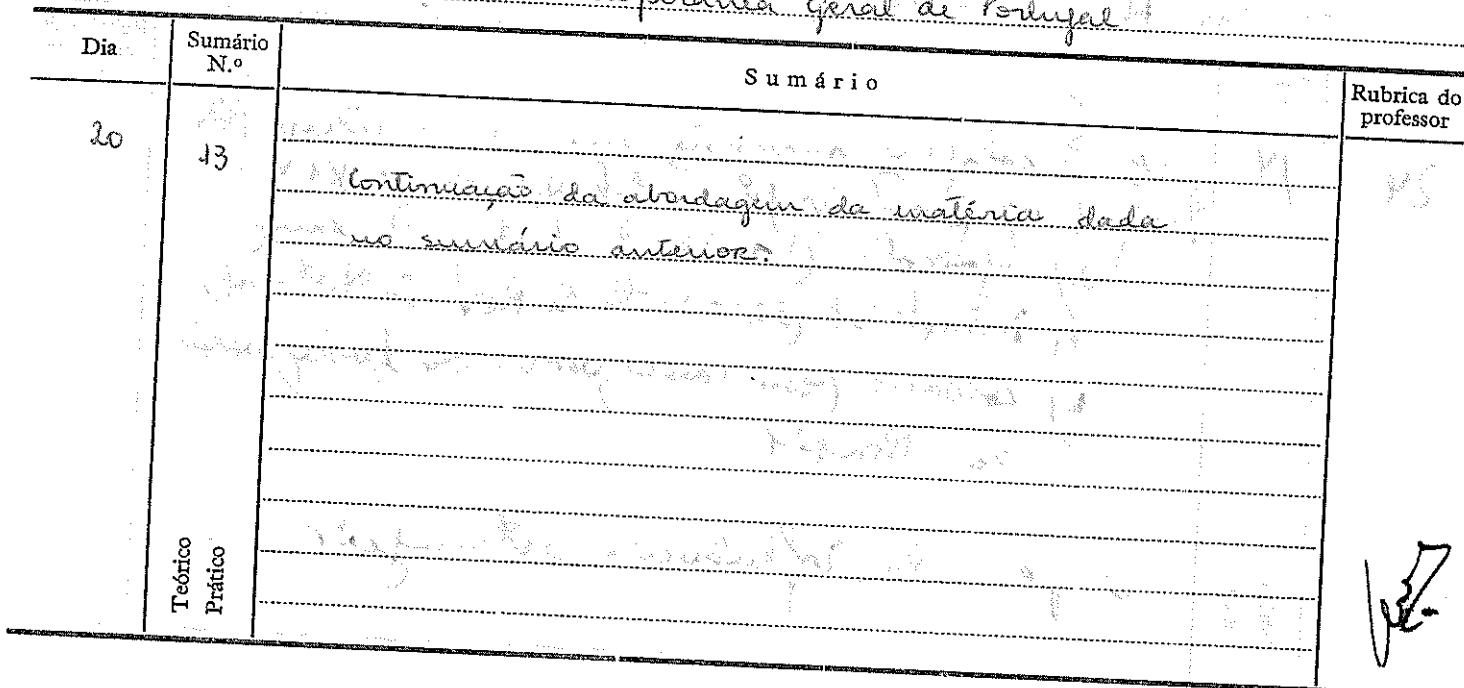 Geral de Portugal
Dia
Sumário N.º
Sumário
Rubrica do professor
20
13
Continuação da abordagem da matéria dada
no sumário anterior.
Teórico
Prático